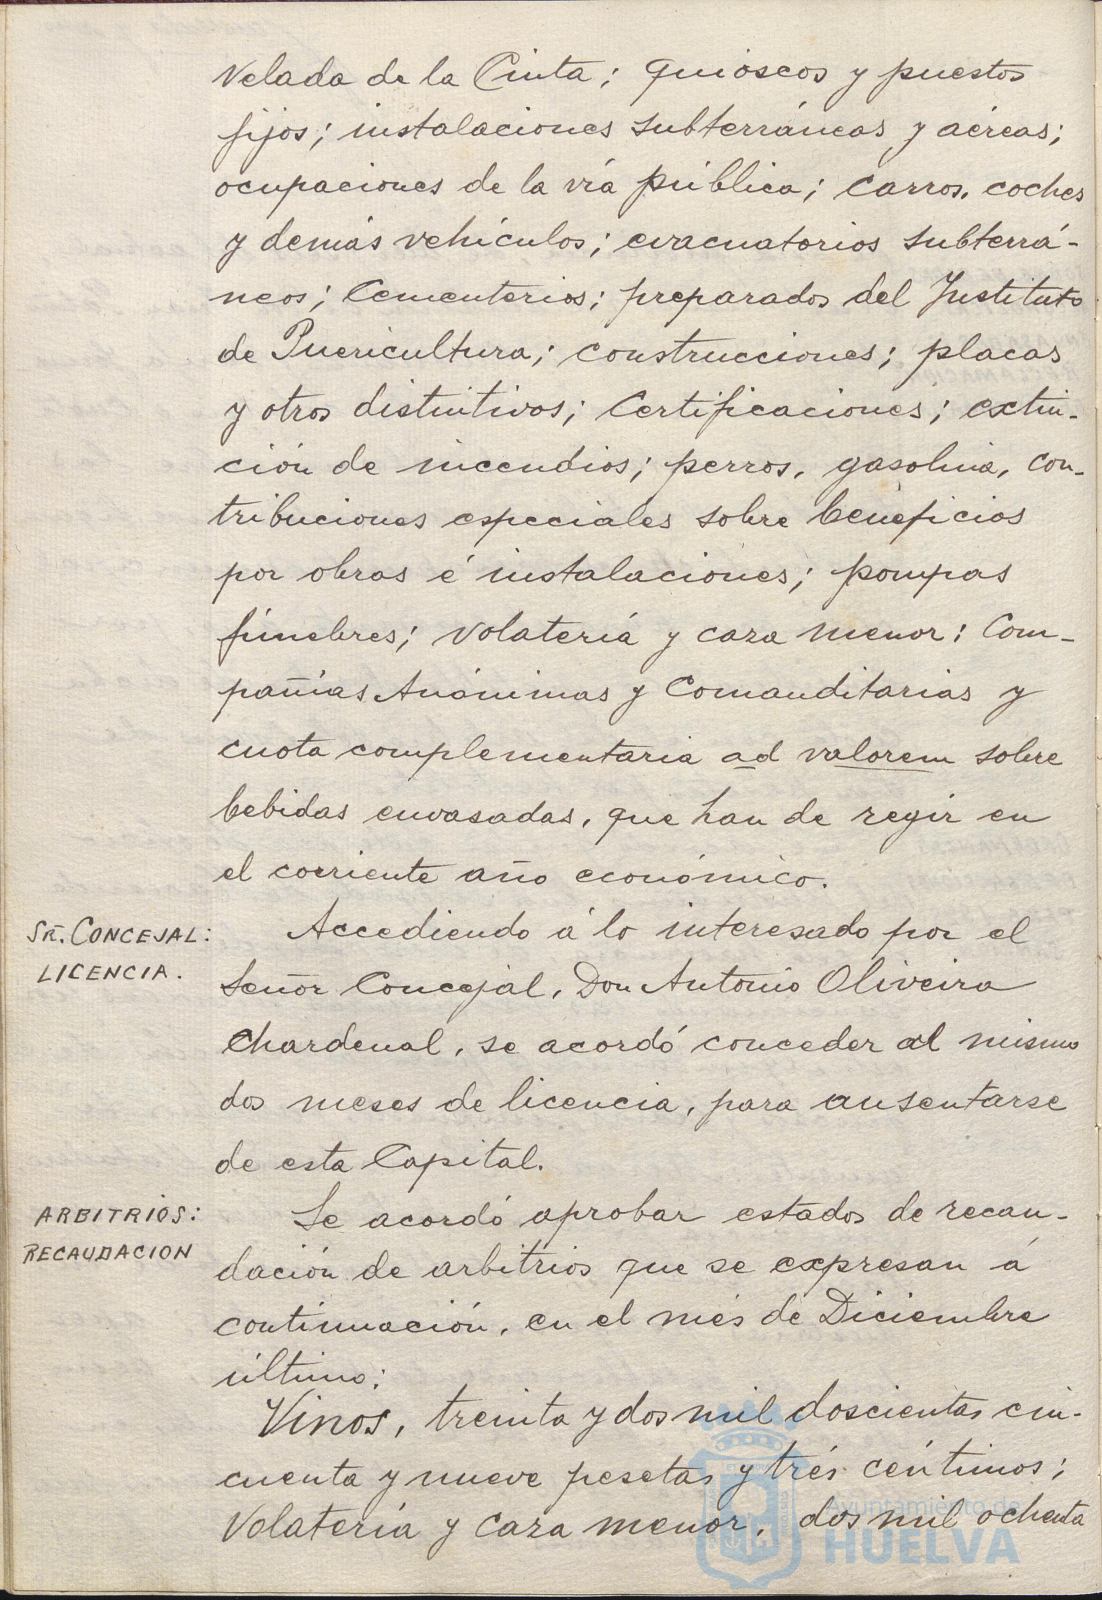 Velada de la Cinta; quioscos y puestos
fijos; instalaciones subterráneas y aéreas;
ocupaciones de la vía pública; carros, coches
y demás vehículos; evacuatorios subterrá-
neos; Cementerios; preparados del Instituto
de Puericultura; construcciones; placas
y otros distintivos; Certificaciones; extin-
ción de incendios; perros, gasolina, con-
tribuciones especiales sobre beneficios
por obras é instalaciones; pompas
fúnebres; volatería y caza menor; Com-
pañías Anónimas y Comanditarias y
cuota complementaria ad valorem sobre
bebidas envasadas, que han de regir en
el corriente año económico.
SR. CONCEJAL:
LICENCIA.
Accediendo á lo interesado por el
Señor Concejal, Don Antonio Oliveira
Chardenal, se acordó conceder al mismo
dos meses de licencia, para ausentarse
de esta Capital.
ARBITRIOS:
RECAUDACION
Se acordó aprobar estados de recau-
dación de arbitrios que se expresan á
continuación, en el més de Diciembre
último:
Vinos, treinta y dos mil doscientas cin-
cuenta y nueve pesetas y trés céntimos;
Volatería y caza menor, dos mil ochenta
Ayuntamiento de
HUELVA